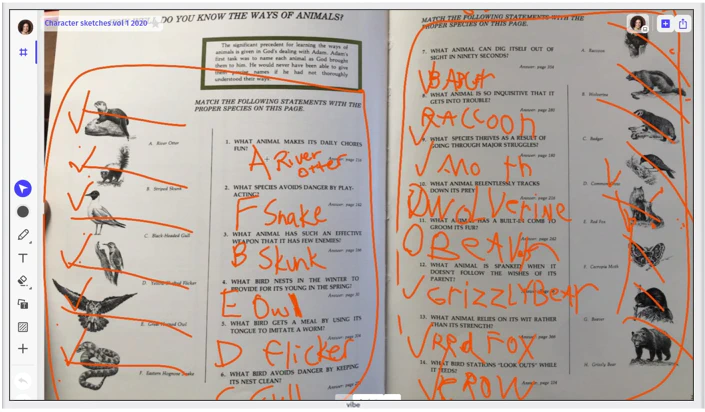 Character sketches vol 1 2020
DO YOU KNOW THE WAYS OF ANIMALS?
The significant precedent for learning the ways of
animals is given in God's dealing with Adam. Adam's
first task was to name each animal as God brought
them to him. He would never have been able to give
them precise names if he had not thoroughly
understood their ways.
MATCH THE FOLLOWING STATEMENTS WITH THE
PROPER SPECIES ON THIS PAGE.
A. River Otter
B. Striped Skunk
C. Black-Headed Gull
D. Yellow-Shafted Flicker
E. Great Horned Owl
F. Eastern Hognose Snake
1. WHAT ANIMAL MAKES ITS DAILY CHORES
FUN?
A River
otter
2. WHAT SPECIES AVOIDS DANGER BY PLAY-
ACTING?
F Snake
3. WHAT ANIMAL HAS SUCH AN EFFECTIVE
WEAPON THAT IT HAS FEW ENEMIES?
B Skunk
4. WHAT BIRD NESTS IN THE WINTER TO
PROVIDE FOR ITS YOUNG IN THE SPRING?
E Owl
5. WHAT BIRD GETS A MEAL BY USING ITS
TONGUE TO IMITATE A WORM?
D flicker
6. WHAT BIRD AVOIDS DANGER BY KEEPING
ITS NEST CLEAN?
MATCH THE FOLLOWING STATEMENTS WITH THE
PROPER SPECIES ON THIS PAGE.
7. WHAT ANIMAL CAN DIG ITSELF OUT OF
SIGHT IN NINETY SECONDS?
8. WHAT ANIMAL IS SO INQUISITIVE THAT IT
GETS INTO TROUBLE?
RACCOON
9. WHAT SPECIES THRIVES AS A RESULT OF
GOING THROUGH MAJOR STRUGGLES?
Moth
10. WHAT ANIMAL RELENTLESSLY TRACKS
DOWN ITS PREY?
Wolverine
11. WHAT ANIMAL HAS A BUILT-IN COMB TO
GROOM ITS FUR?
BEAVER
12. WHAT ANIMAL IS SPANKED WHEN IT
DOESN'T FOLLOW THE WISHES OF ITS
PARENT?
GrizzlyBEAr
13. WHAT ANIMAL RELIES ON ITS WIT RATHER
THAN ITS STRENGTH?
REd FOX
14. WHAT BIRD STATIONS "LOOK OUTS" WHILE
IT FEEDS?
CROW
A. Raccoon
B. Wolverine
C. Badger
E. Red Fox
F. Cecropia Moth
G. Beaver
H. Grizzly Bear
vibe